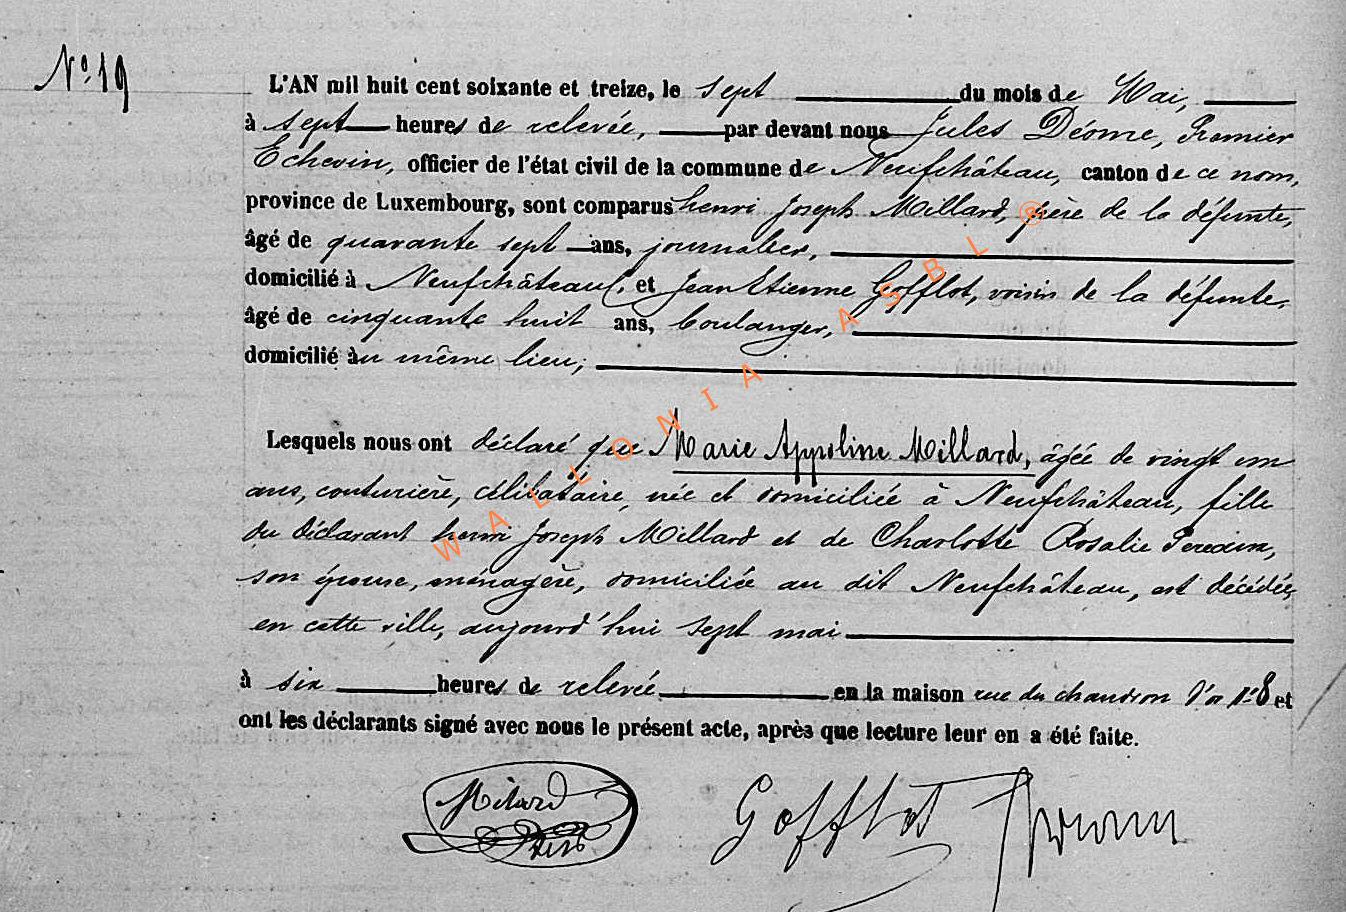 N° 19
L'AN mil huit cent soixante et treize, le sept du mois de Mai,
à sept heures de relevée, par devant nous Jules Déome, Premier
Echevin, officier de l'état civil de la commune de Neufchâteau, canton de ce nom,
province de Luxembourg, sont comparus henri Joseph Millard, père de la défunte,
âgé de quarante sept ans, journalier,
domicilié à Neufchâteau, et Jean Etienne Gofflot, voisin de la défunte,
âgé de cinquante huit ans, boulanger,
domicilié au même lieu;
Lesquels nous ont déclaré que Marie Appoline Millard, âgée de vingt un
ans, couturière, célibataire, née et domiciliée à Neufchâteau, fille
du déclarant henri Joseph Millard et de Charlotte Rosalie
son épouse, ménagère, domiciliée au dit Neufchâteau, est décédée
en cette ville, aujourd'hui sept mai
à six heures de relevée en la maison rue du chaudron d'or n° 8 et
ont les déclarants signé avec nous le présent acte, après que lecture leur en a été faite.
Milard
Gofflot
WALLONIA ASBL ®